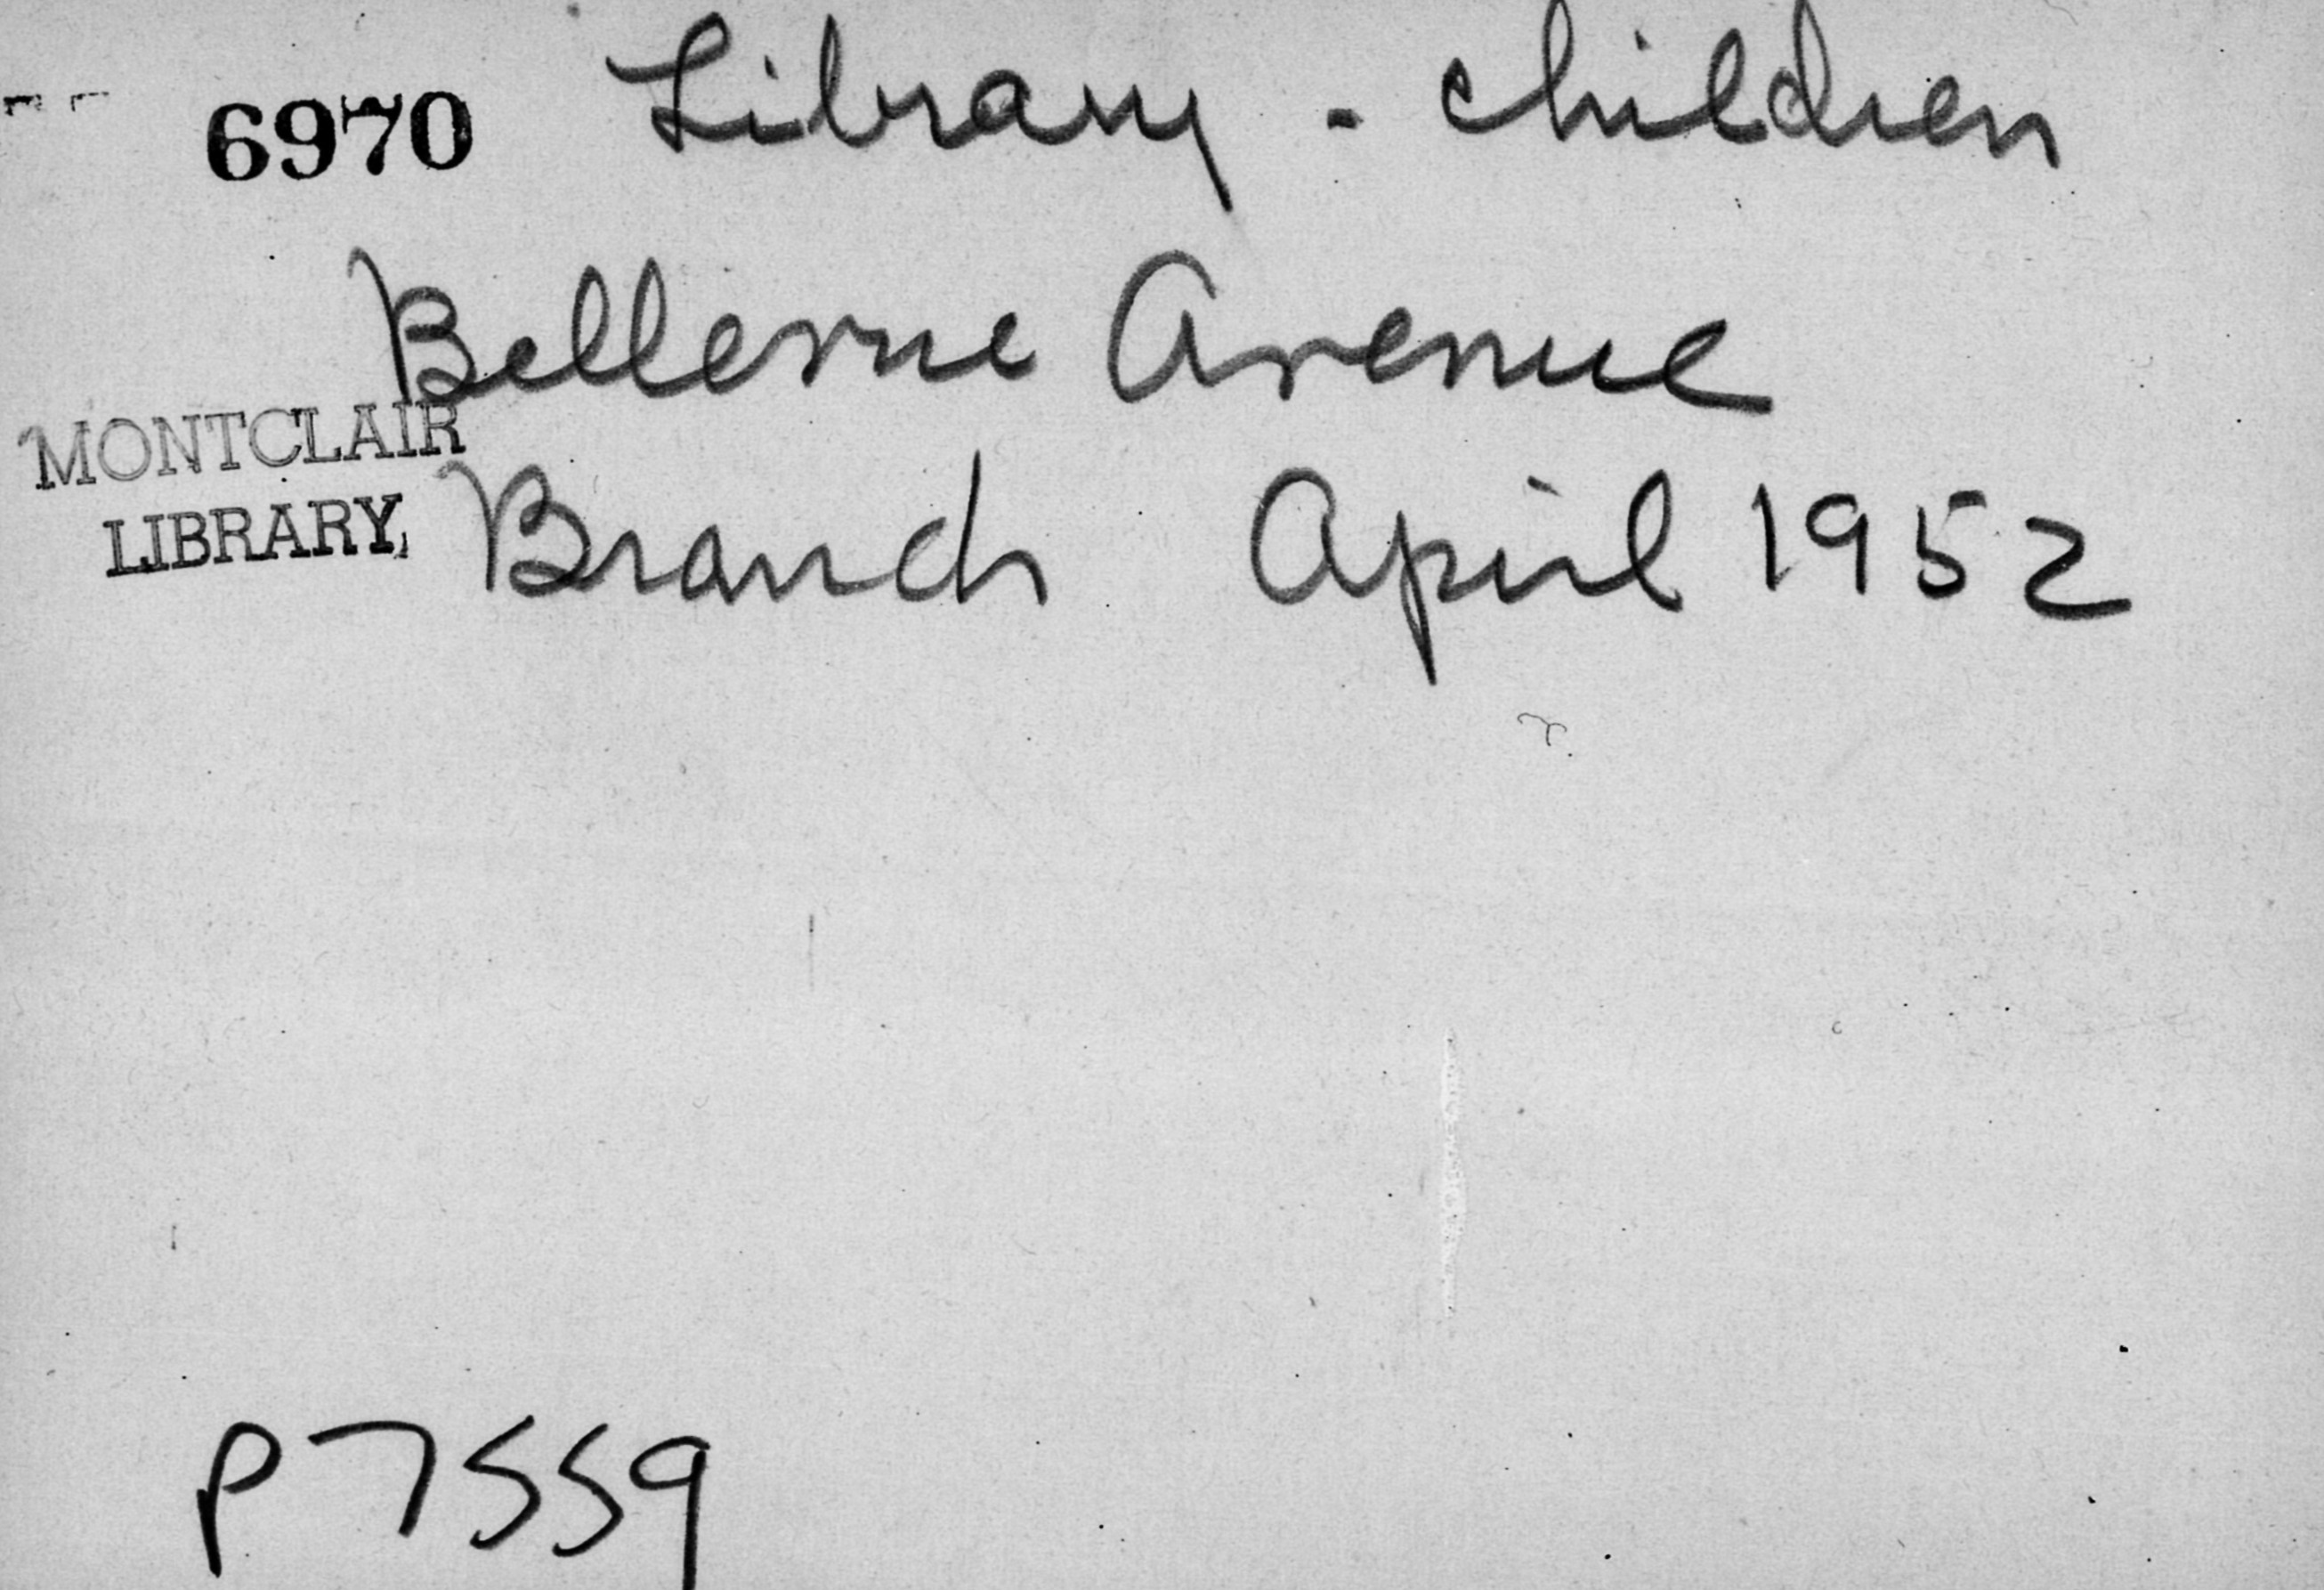 6970 Library - children
Bellevue Avenue
MONTCLAIR
LIBRARY
Branch April 1952
P7559